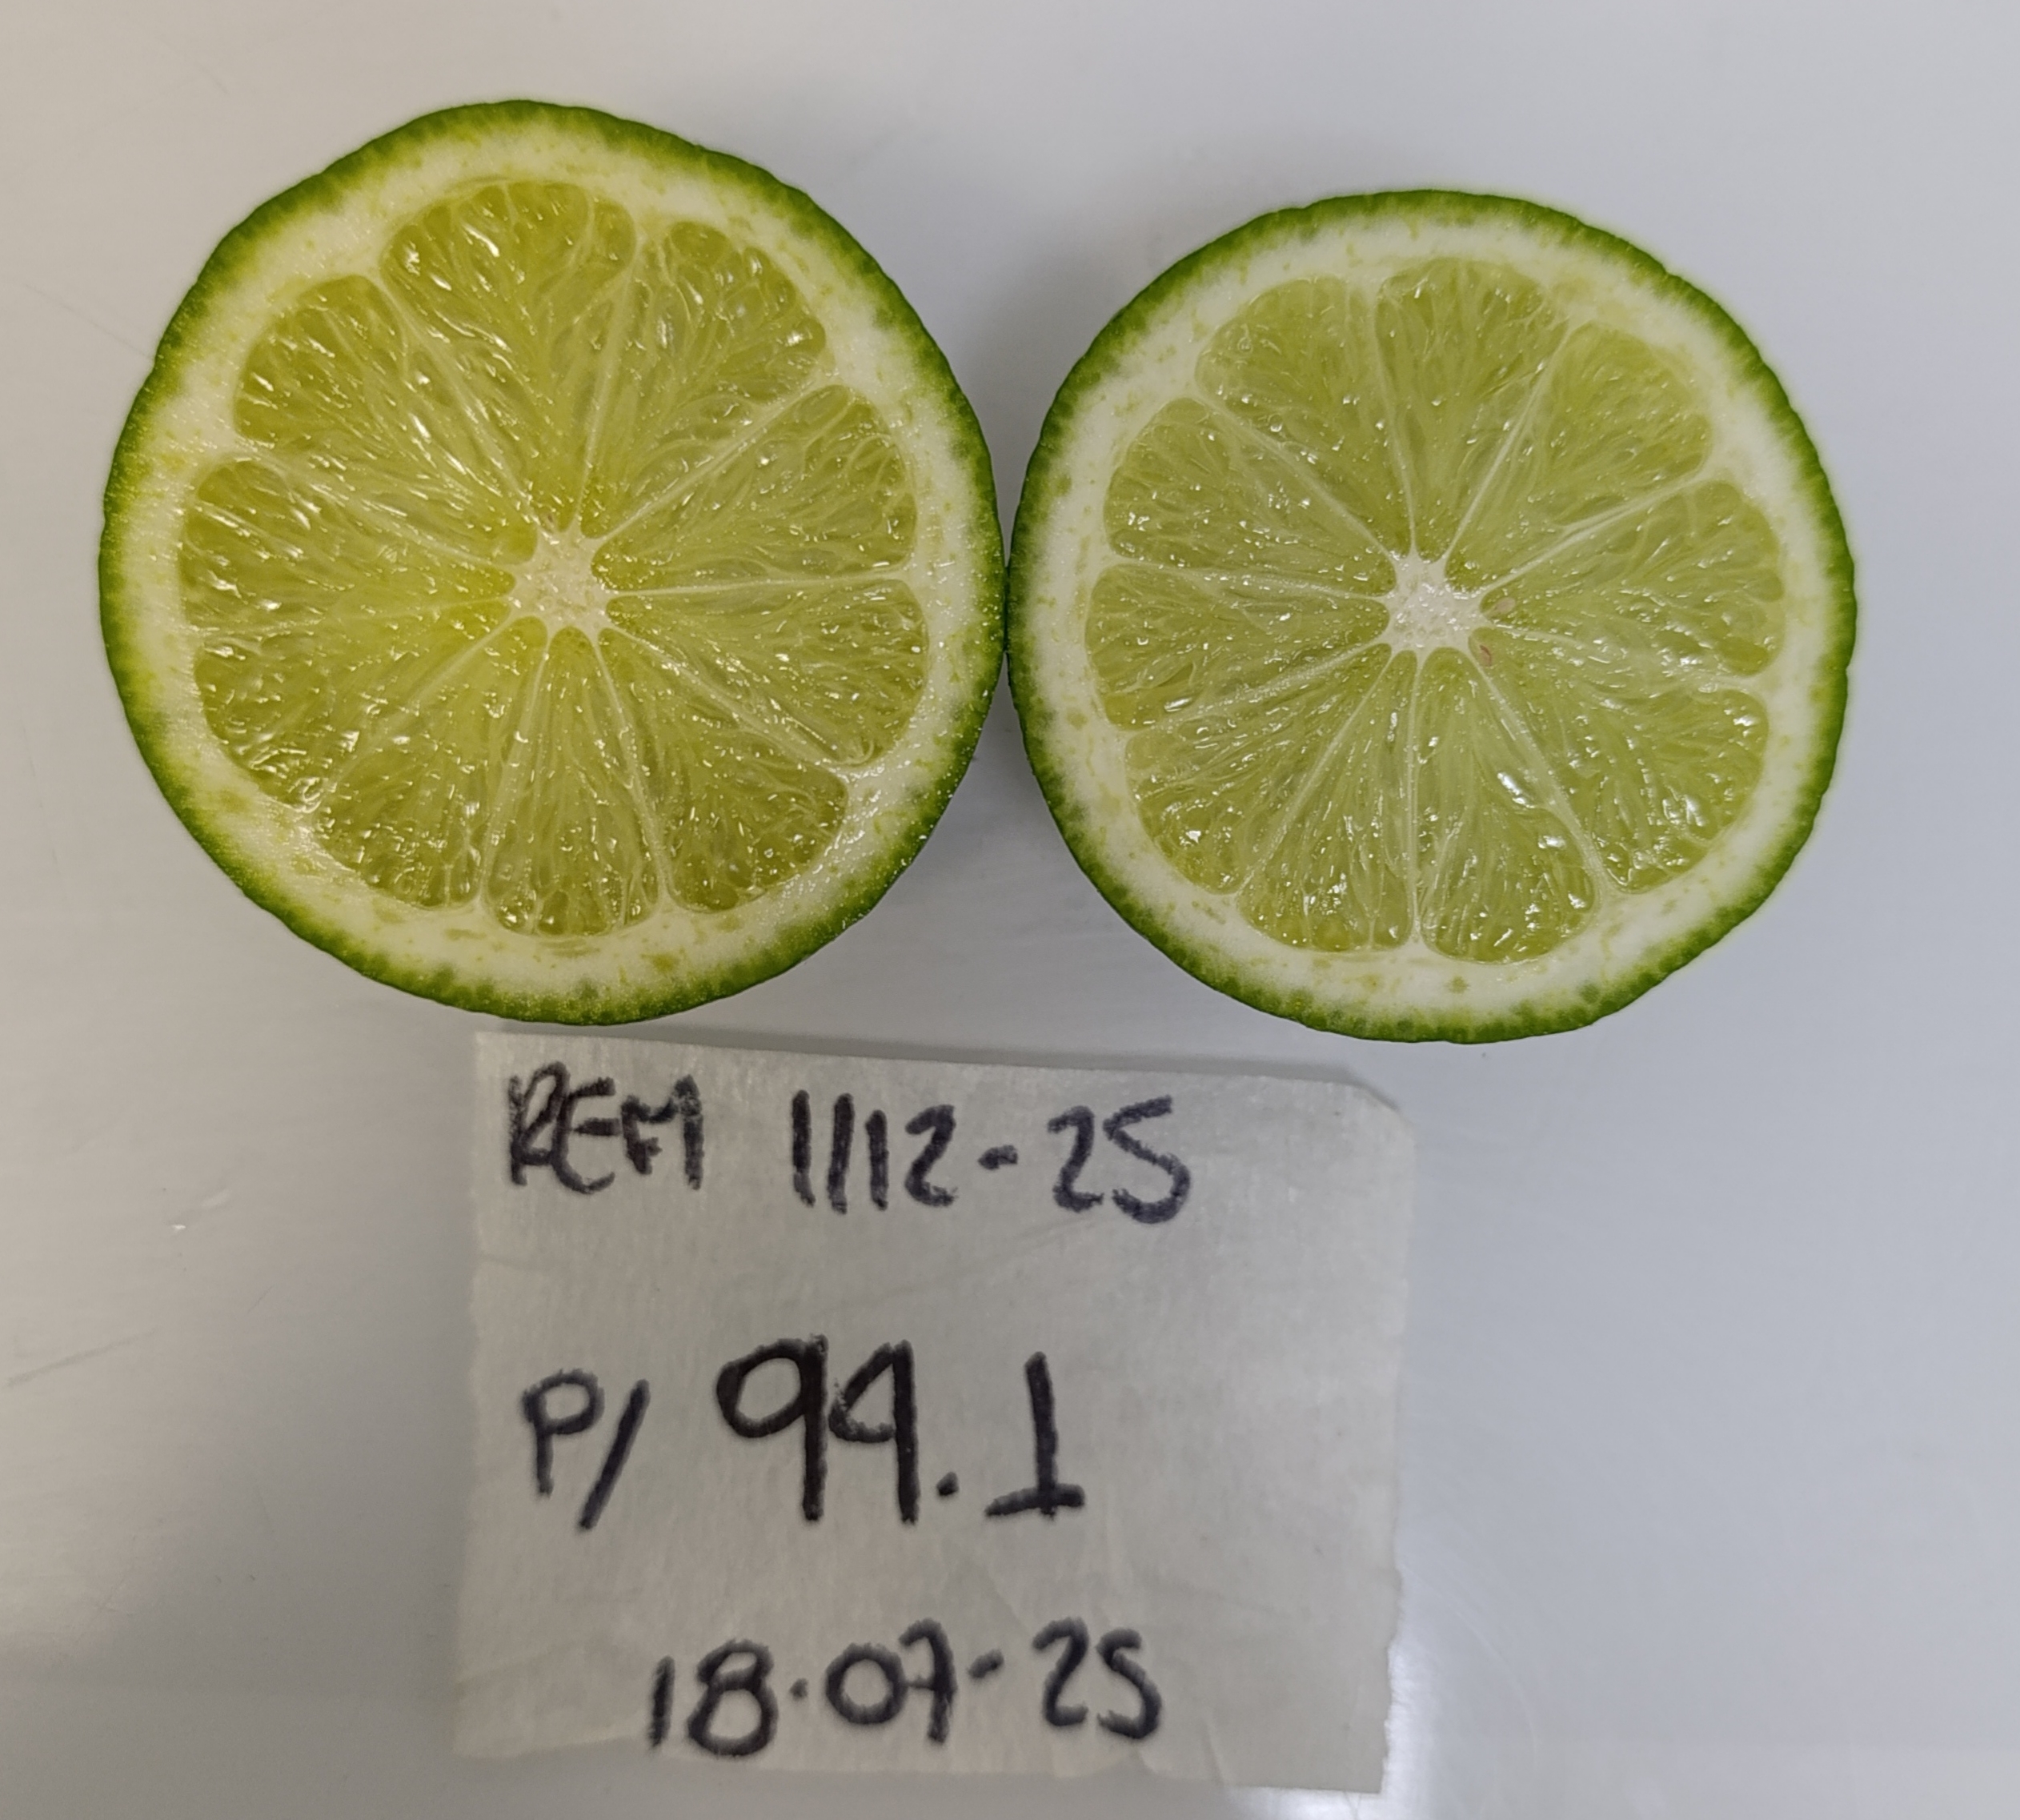 REM 1112-25
P/ 94.1
18.07-25